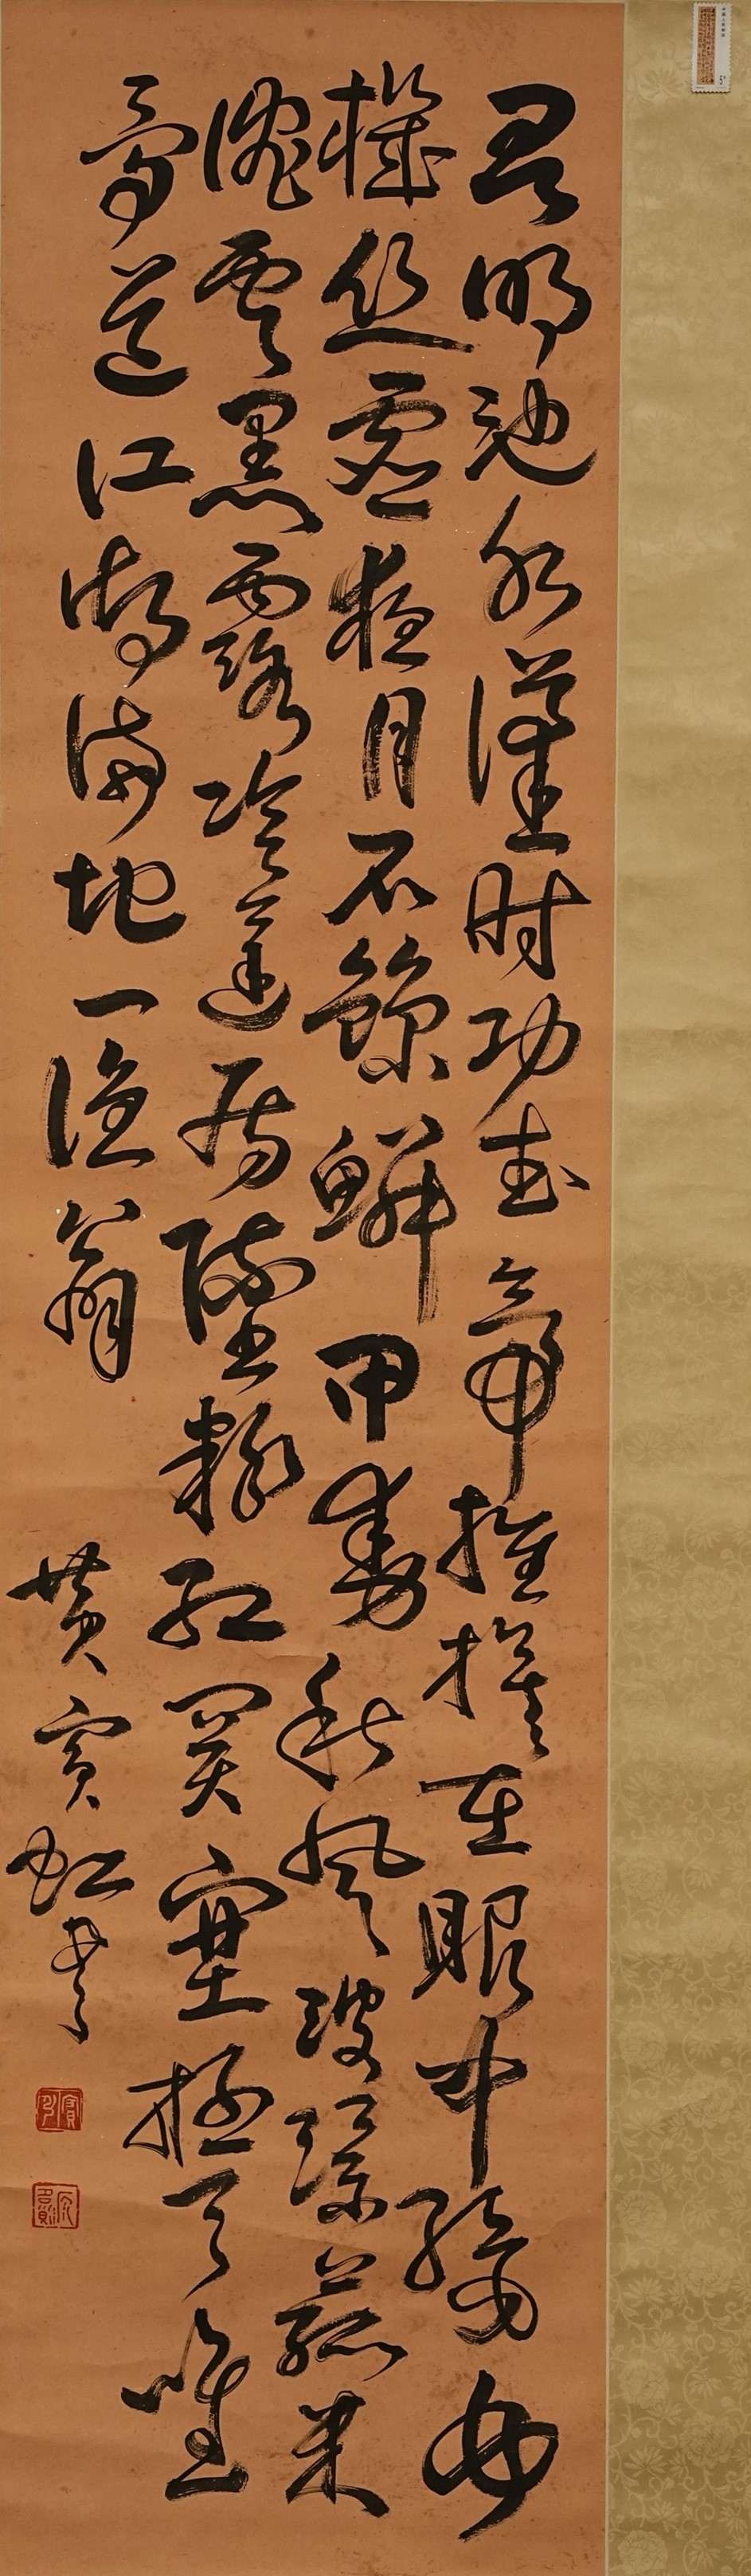 昆明池水漢時功武帝旌旗在眼中織女
機絲虛夜月石鯨鱗甲動秋風波漂菰米
沈雲黑露冷蓮房墜粉紅關塞極天唯
鳥道江湖滿地一漁翁
黃賓虹書